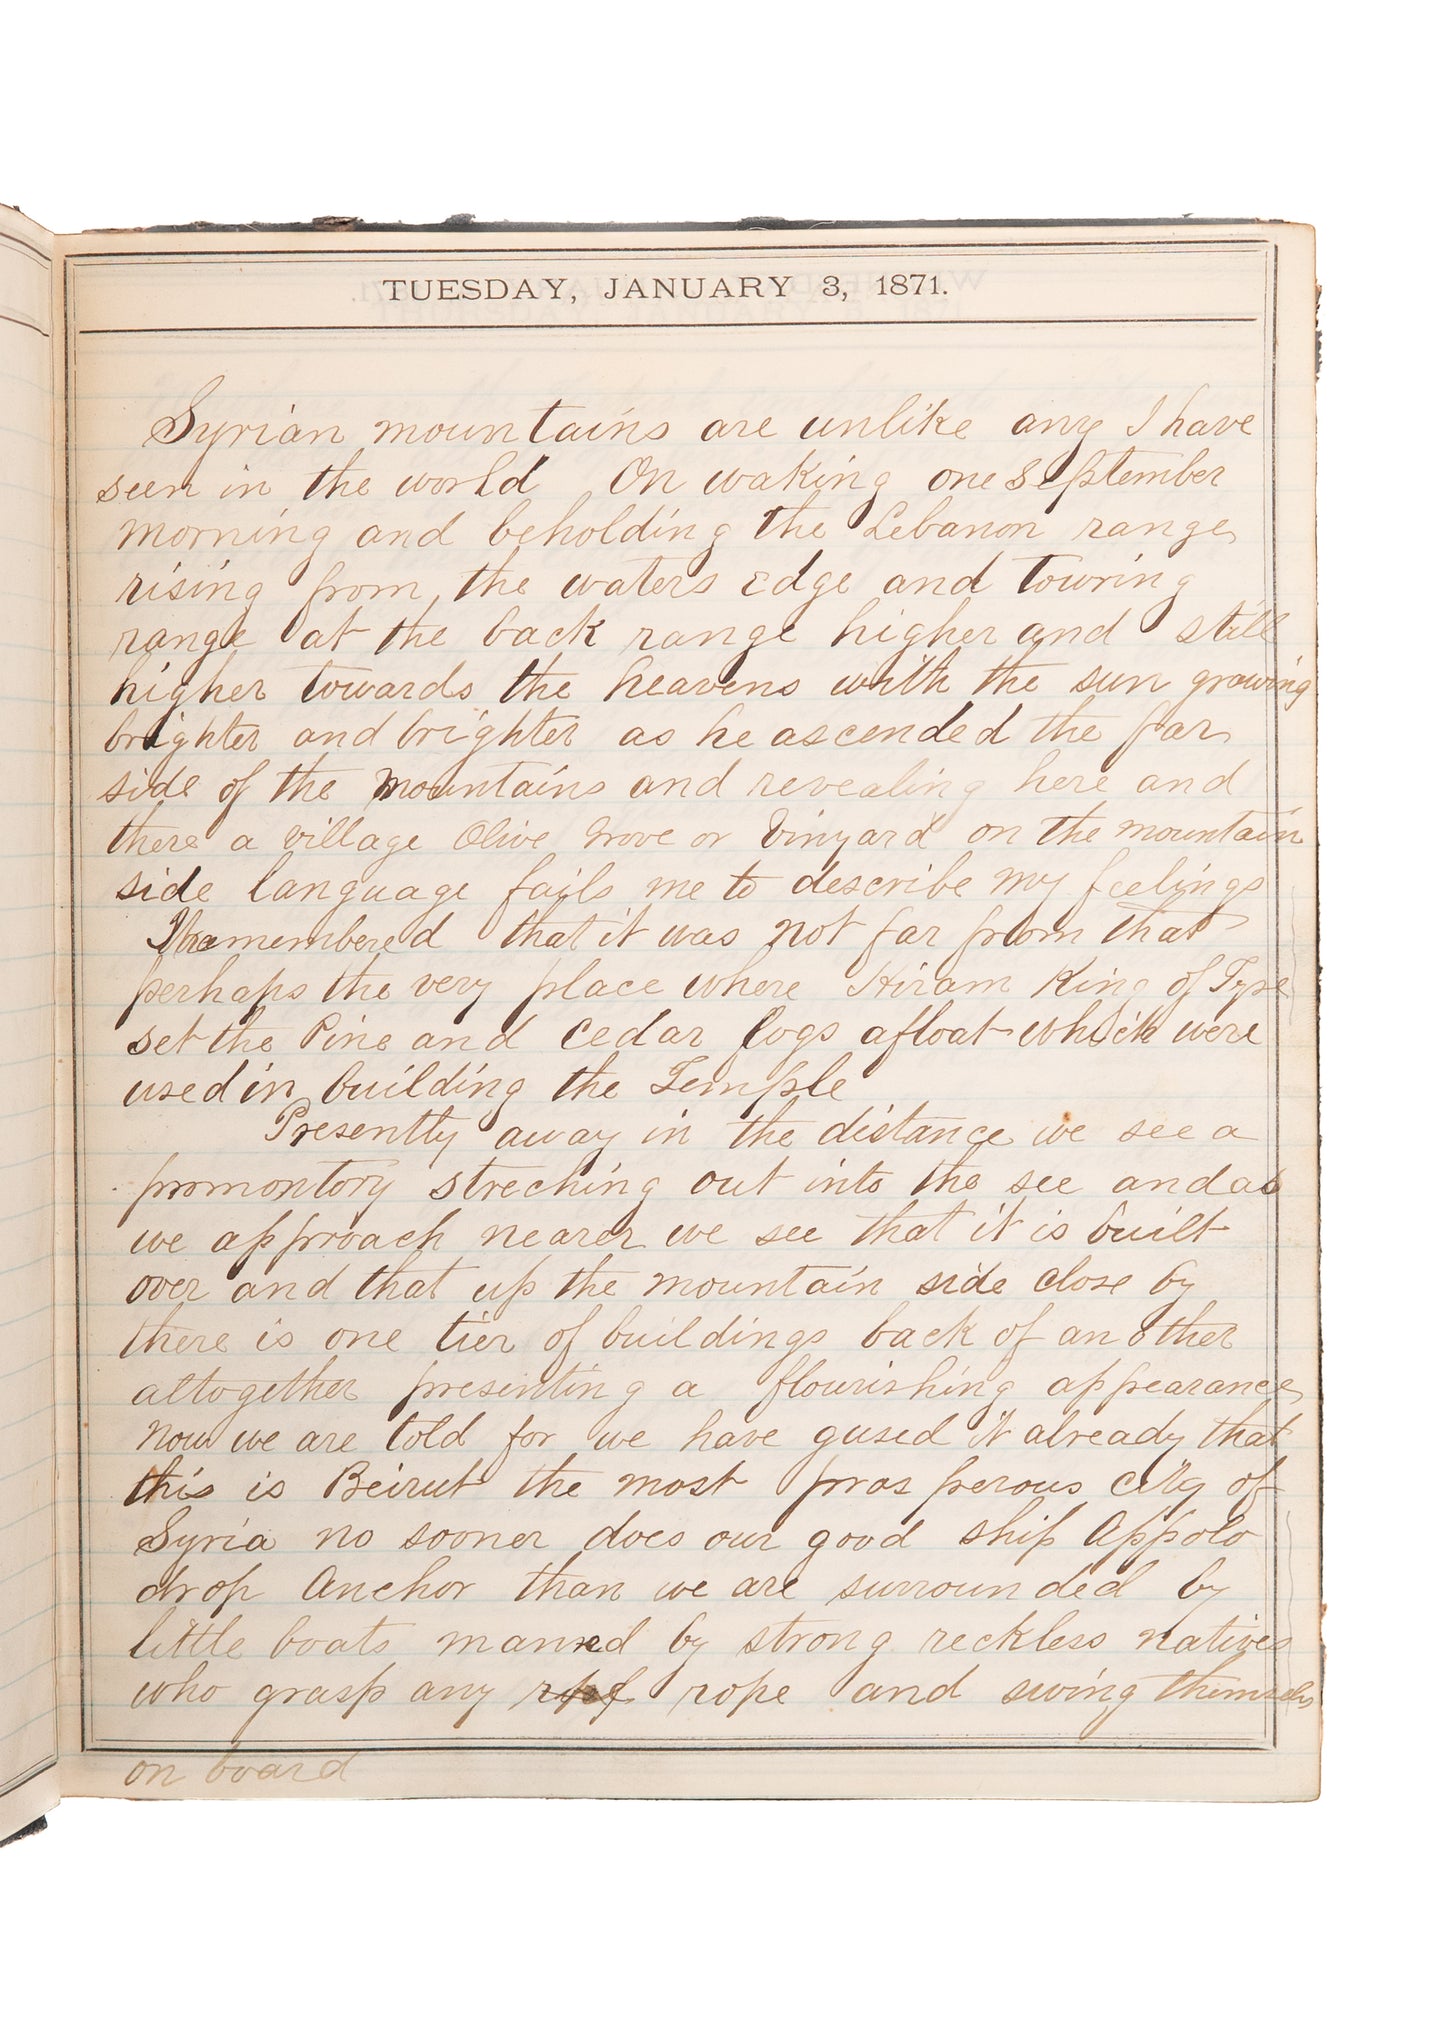 TUESDAY, JANUARY 3, 1871.
Syrian mountains are unlike any I have
seen in the world On waking one September
morning and beholding the Lebanon range
rising from the waters edge and towring
range at the back range higher and still
higher towards the heavens with the sun growing
brighter and brighter as he ascended the far
side of the mountains and revealing here and
there a village Olive Grove or Vinyard on the mountain
side language fails me to describe my feelings
I remembered that it was not far from that
perhaps the very place where Hiram King of Tyre
set the Pine and Cedar logs afloat which were
used in building the Temple
Presently away in the distance we see a
promontory streching out into the see and as
we approach nearer we see that it is built
over and that up the mountain side close by
there is one tier of buildings back of an other
altogether presenting a flourishing appearance
Now we are told for we have gused it already that
this is Beirut the most prosperous city of
Syria no sooner does our good ship Appolo
drop Anchor than we are surrounded by
little boats manned by strong reckless natives
who grasp any rope and swing themselvs
on board